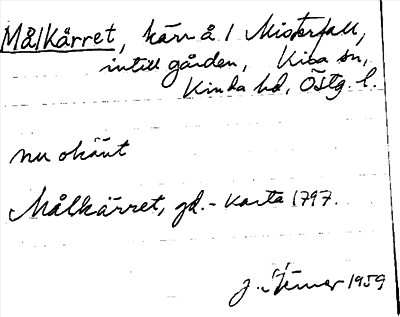 Målkärret, kärr å 1 Misterfall,
intill gården, Kisa sn,
Kinda hd, Östg. l.
nu okänt
Målkärret, gd. - karta 1797.
J. 1959